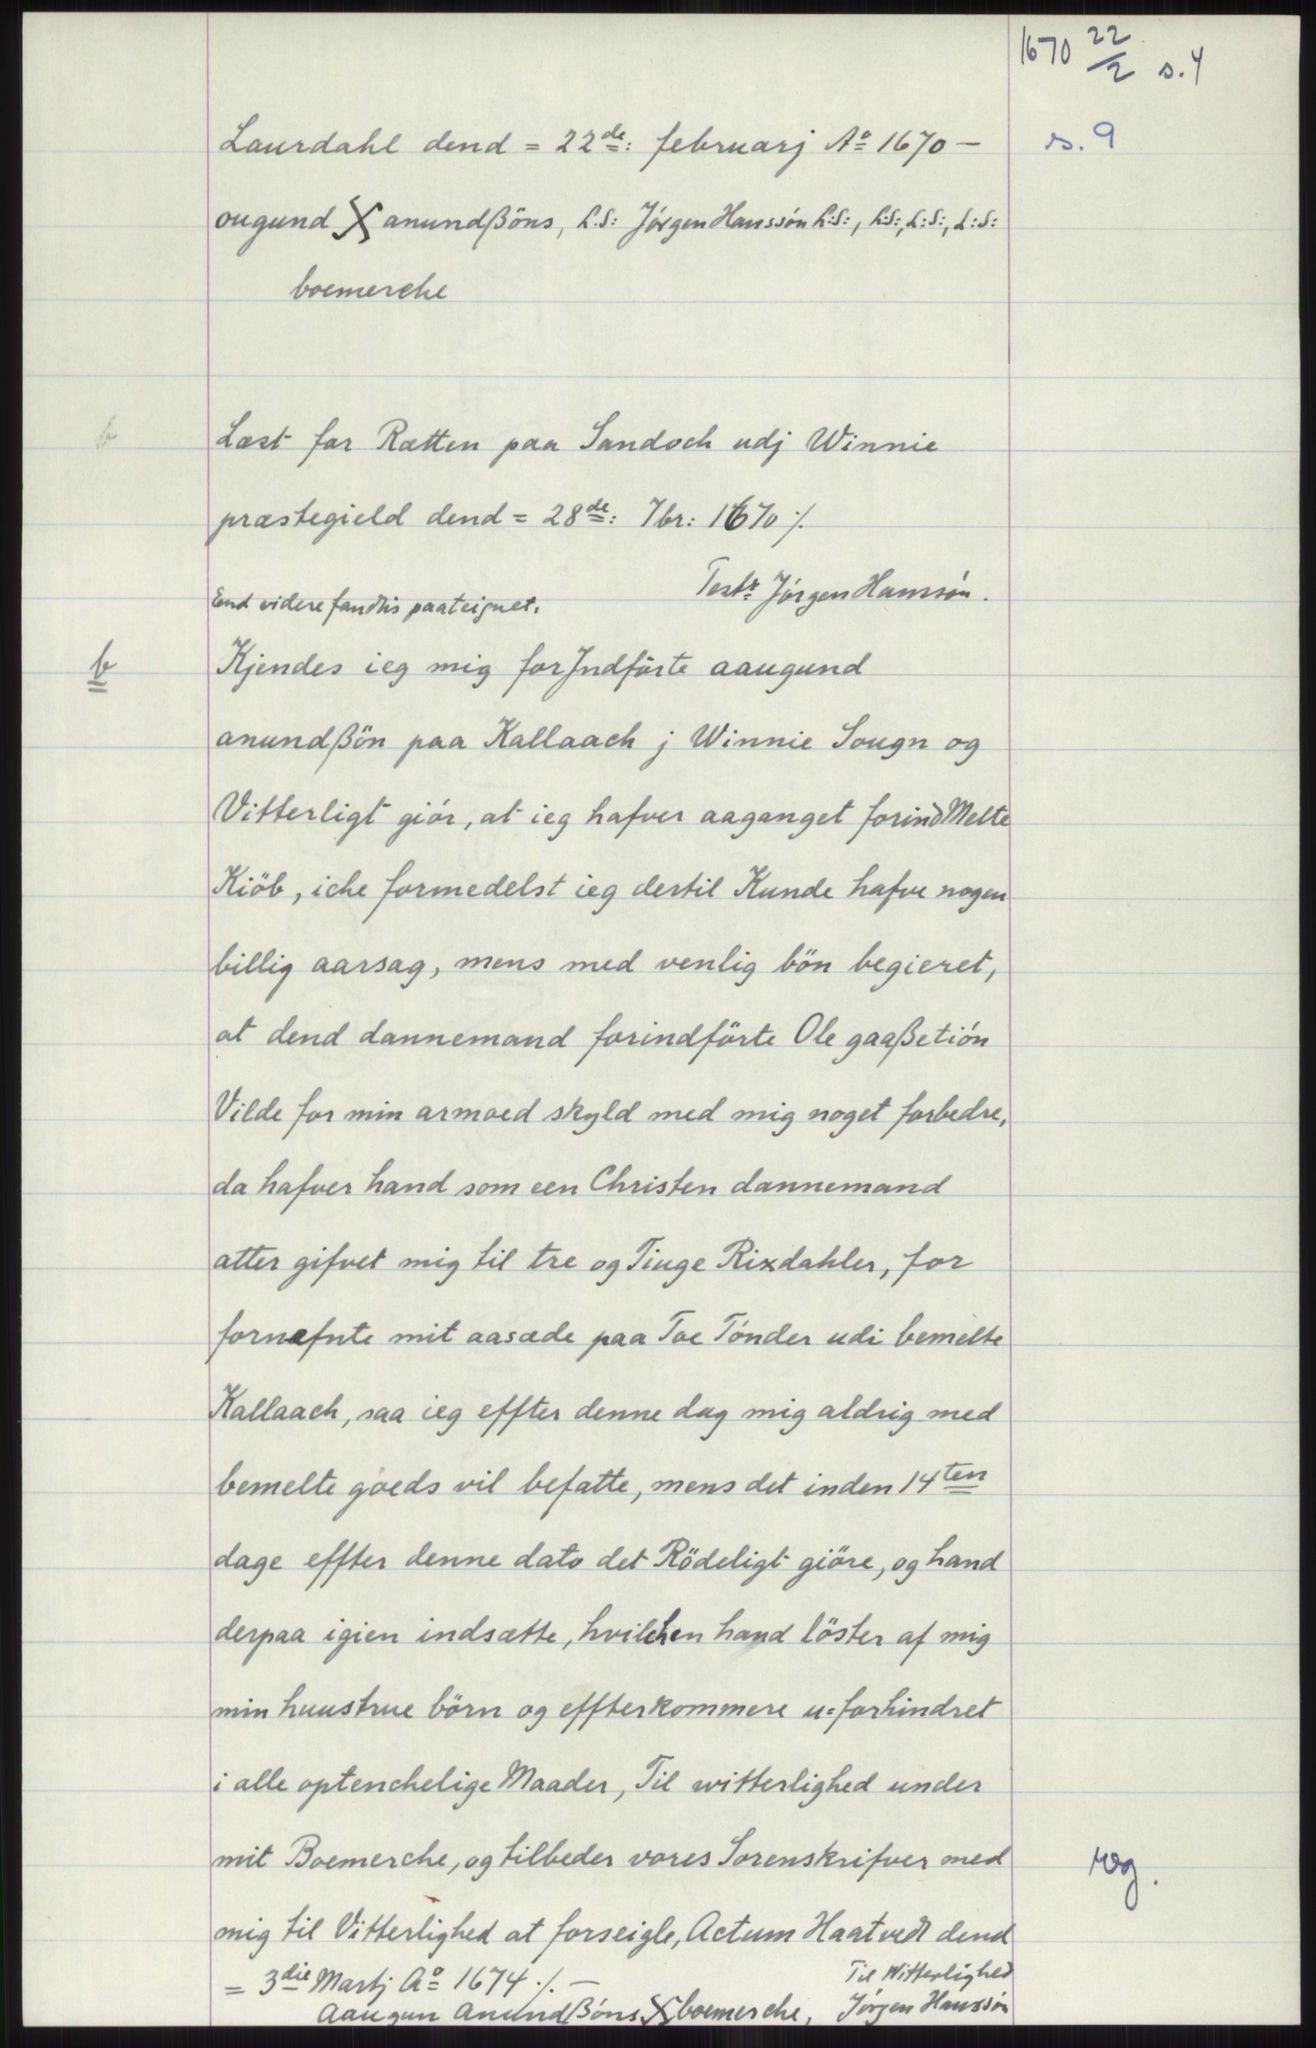 1670 22/2 s. 4
Laurdahl dend = 22de: februarj Ao 1670 —
s. 9
ougund X anundßöns, L.S: Jórgen Hanssón L:S:, L:S:, L:S:, L:S:
boemerche
b
Læst for Rætten paa Sandoch udj Winnie
præstegield dend = 28de: 7br: 1670 ./.
Test: Jórgen Hanssón.
End videre fandtis paateignet.
b
Kjendes ieg mig forJndförte aaugund
anundßön paa Kallaach j Winnie Sougn og
Vitterligt giór, at ieg hafver aaganget forindMelte
Kiöb, iche formedelst ieg dertil Kunde hafve nogen
billig aarsag, mens med venlig bön begieret,
at dend dannemand forindförte Ole gaaßetión
Vilde for min armoed skyld med mig noget forbedre,
da hafver hand som een Christen dannemand
atter gifvet mig til tre og Tiuge Rixdahler, for
fornæfnte mit aasæde paa Toe Tónder udi bemelte
Kallaach, saa ieg effter denne dag mig aldrig med
bemelte goeds vil befatte, mens det inden 14ten
dage effter denne dato det Rödeligt giöre, og hand
derpaa igien indsætte, hvilchen hand löster af mig
min huustrue börn og effterkommere u=forhindret
i alle optenchelige Maader, Til witterlighed under
mit Boemerche, og tilbeder vores Sorenskrifver med
reg.
mig til Vitterlighed at forseigle, Actum Haatvedt dend
= 3die Martj Ao 1674 ./. —
Til Witterlighed
Aaugun AnundßönsX boemerche, Jórgen Hanssón